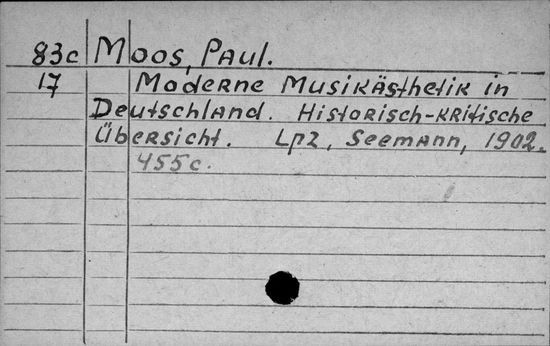 83c Moos, Paul.
17 Moderne Musikästhetik in
Deutschland. Historisch-kritische
Übersicht. Lpz, Seemann, 1902.
455c.